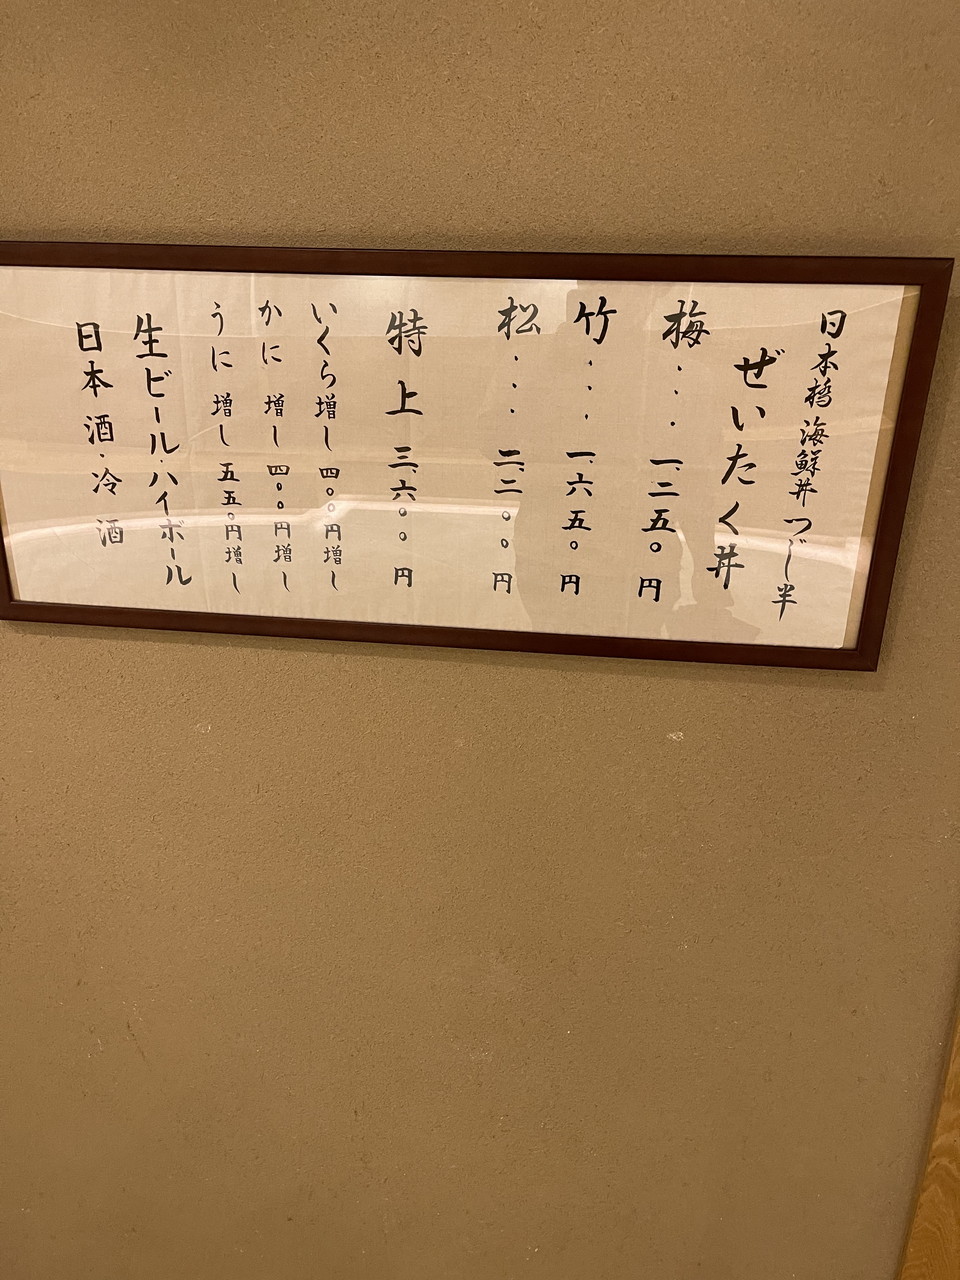 日本橋海鮮丼つじ半
ぜいたく丼
梅・・・一、二五〇円
竹・・・一、六五〇円
松・・・二、二〇〇円
特上三、六〇〇円
いくら増し四〇〇円増し
かに増し四〇〇円増し
うに増し五五〇円増し
生ビール・ハイボール
日本酒・冷酒